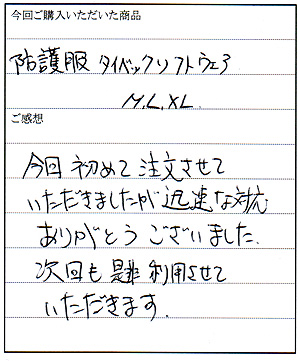 今回ご購入いただいた商品
防護服 タイベックソフトウェア
M,L,XL.
ご感想
今回 初めて 注文させて
いただきましたが 迅速な対応
ありがとう ございました.
次回も 是非 利用させて
いただきます.